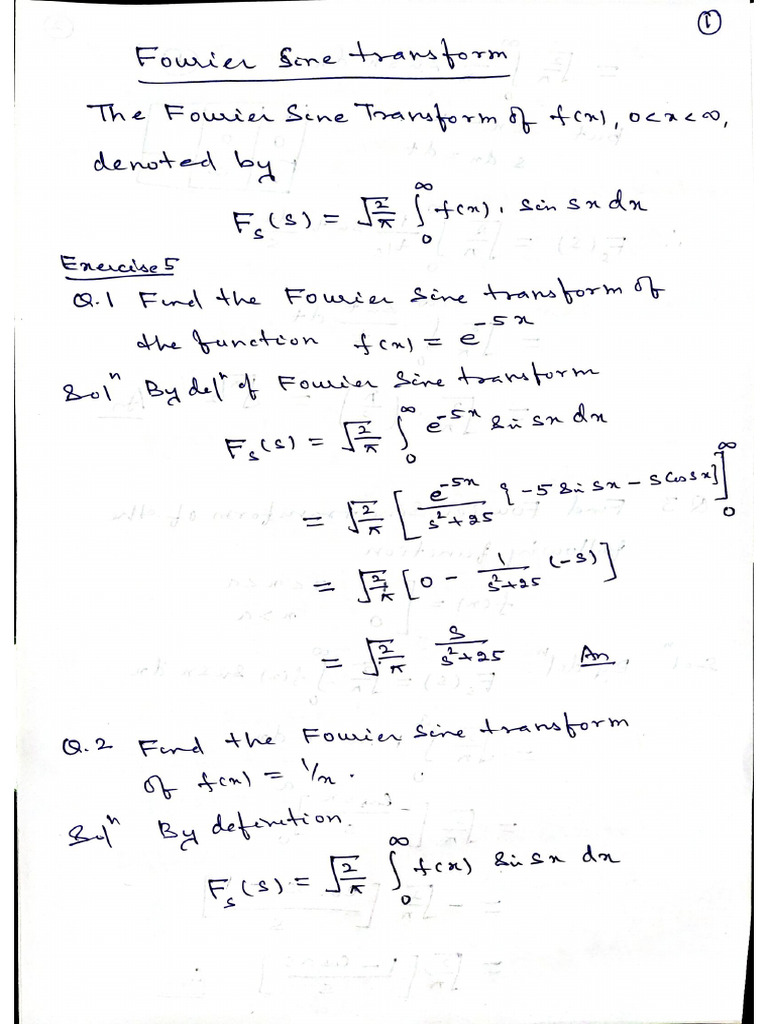 ①
Fourier Sine transform
The Fourier Sine Transform of f(x), 0<x<∞,
denoted by
F_s(s) = √(2/π) ∫_0^∞ f(x). sin sx dx
Exercise 5
Q.1 Find the Fourier Sine transform of
the function f(x) = e^{-5x}
Solⁿ By defⁿ of Fourier Sine transform
F_s(s) = √(2/π) ∫_0^∞ e^{-5x} sin sx dx
= √(2/π) [ e^{-5x}/(s²+25) {-5 sin sx - s cos sx} ]_0^∞
= √(2/π) [0 - 1/(s²+25) (-s)]
= √(2/π) s/(s²+25) An.
Q.2 Find the Fourier Sine transform
of f(x) = 1/x.
Solⁿ By definition.
F_s(s) = √(2/π) ∫_0^∞ f(x) sin sx dx